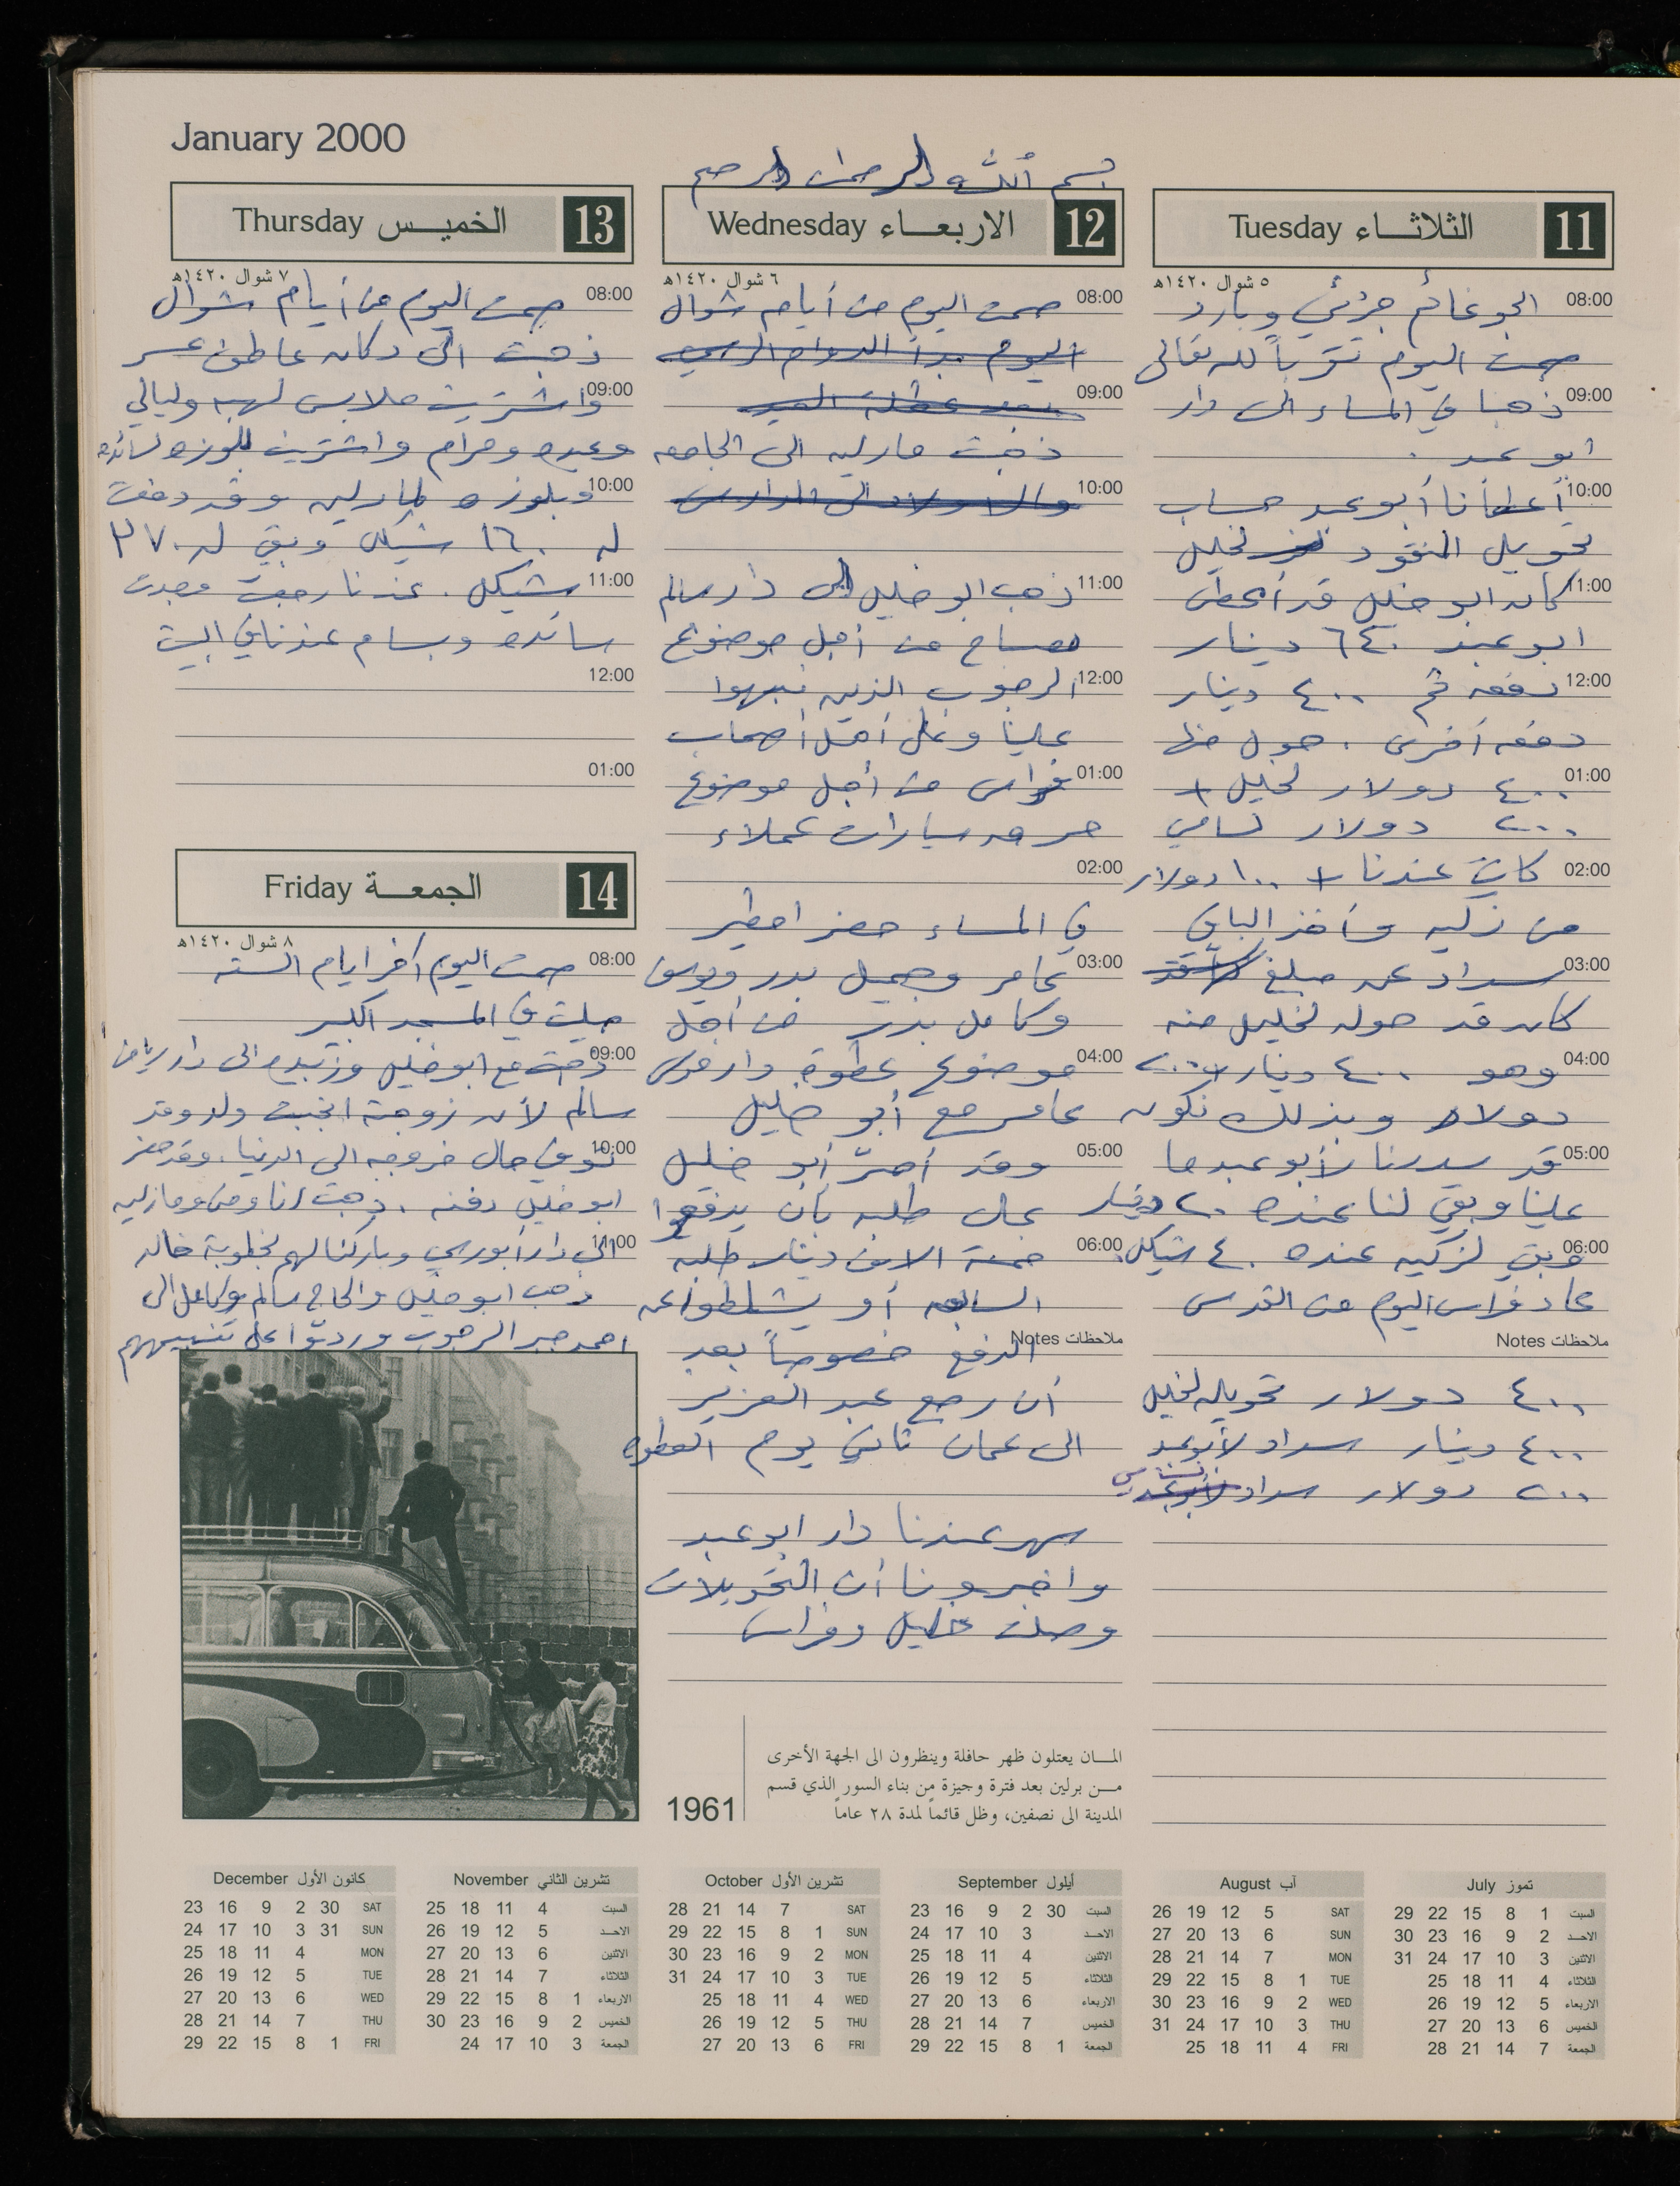 January 2000
بسم الله الرحمن الرحيم
11 الثلاثاء Tuesday
٥ شوال ١٤٢٠هـ
08:00 الجو غائم جزئي وبارد
صمت اليوم تقرباً لله تعالى
09:00 ذهبنا في المساء الى دار
ابو عبد .
10:00 أعطانا أبو عبد حساب
تحويل النقود لخليل
11:00 كان ابو خليل قد أعطى
ابو عبد ٦٤٠ دينار
12:00 دفعه ثم ٤٠٠ دينار
دفعه أخرى . حول منها
01:00 ٤٠٠ دولار لخليل +
٢٠٠ دولار لسامي
02:00 كانت عندنا + ١٠٠ دولار
من زكيه وأخذ الباقي
03:00 سداد عن مبلغ
كان قد حوله لخليل منه
04:00 وهو ٤٠٠ دينار + ٢٠٠
دولار وبذلك نكون
05:00 قد سددنا لأبو عبد ما
علينا وبقي لنا عنده ٢٠ دينار
06:00 وبقي لزكيه عنده ٤٠ شيكل.
عاد فراس اليوم من القدس
ملاحظات Notes
٤٠٠ دولار تحويل لخليل
٤٠٠ دينار سداد لأبو عبد
٢٠٠ دولار سداد
12 الاربعاء Wednesday
٦ شوال ١٤٢٠هـ
08:00 صمت اليوم من أيام شوال
اليوم بدأ الدوام الرسمي
09:00 بعد عطلة العيد
ذهبت مارلين الى الجامعه
10:00 والاولاد الى المدارس
11:00 ذهب ابو خليل الى دار سالم
مصباح من أجل موضوع
12:00 الرجوب الذين
علينا وعلى أهل أصحاب
01:00 فراس من أجل موضوع
حرق سيارات عملاء
02:00
في المساء حضر اخطير
03:00 عامر وجميل بدر
وكامل بدر من أجل
04:00 موضوع عطوة دار
عامر مع أبو خليل
05:00 وقد أصرّ أبو خليل
على طلبه بأن يدفعوا
06:00 خمسة الاف دينار طلبه
السابق أو
ملاحظات Notes
الدفع خصوصاً بعد
أن رجع عبد العزيز
الى عمان ثاني يوم العطوه
سهر عندنا دار ابو عبد
واخبرونا أن التحويلات
وصلت خليل وفراس
13 الخميس Thursday
٧ شوال ١٤٢٠هـ
08:00 صمت اليوم من أيام شوال
ذهبت الى دكان عاطف
09:00 واشتريت ملابس لهبه وليالي
وعبده ومرام واشتريت بلوزه لسائده
10:00 وبلوزه لمارلين وقد دفعت
له ١٦٠ شيكل وبقي له ٢٧٠
11:00 شيكل . عندنا رجعت وجدت
سائده وبسام عندنا في البيت
12:00
01:00
14 الجمعة Friday
٨ شوال ١٤٢٠هـ
08:00 صمت اليوم أخر ايام السته
صليت في المسجد الكبير
09:00 ذهبت مع ابو خليل وزبيده الى دار رياض
سالم لأن زوجته انجبت ولد وقد
10:00 توفي حال خروجه الى الدنيا . وقد حضر
ابو خليل دفنه . ذهبت انا ومارلين
11:00 الى دار أبو وباركنا لهم بخطوبة خالد
ذهب ابو خليل والحاج سالم وكامل الى
احمد جبر الرجوب وردوا على
المـان يعتلون ظهر حافلة وينظرون الى الجهة الأخرى
مـن برلين بعد فترة وجيزة من بناء السور الذي قسم
المدينة الى نصفين، وظل قائماً لمدة ٢٨ عاماً
1961
July تموز
29 22 15 8 1 السبت
30 23 16 9 2 الاحـد
31 24 17 10 3 الاثنين
25 18 11 4 الثلاثاء
26 19 12 5 الاربعاء
27 20 13 6 الخميس
28 21 14 7 الجمعة
August آب
26 19 12 5 SAT
27 20 13 6 SUN
28 21 14 7 MON
29 22 15 8 1 TUE
30 23 16 9 2 WED
31 24 17 10 3 THU
25 18 11 4 FRI
September أيلول
23 16 9 2 30 السبت
24 17 10 3 الاحـد
25 18 11 4 الاثنين
26 19 12 5 الثلاثاء
27 20 13 6 الاربعاء
28 21 14 7 الخميس
29 22 15 8 1 الجمعة
October تشرين الأول
28 21 14 7 SAT
29 22 15 8 1 SUN
30 23 16 9 2 MON
31 24 17 10 3 TUE
25 18 11 4 WED
26 19 12 5 THU
27 20 13 6 FRI
November تشرين الثاني
25 18 11 4 السبت
26 19 12 5 الاحـد
27 20 13 6 الاثنين
28 21 14 7 الثلاثاء
29 22 15 8 1 الاربعاء
30 23 16 9 2 الخميس
24 17 10 3 الجمعة
December كانون الأول
23 16 9 2 30 SAT
24 17 10 3 31 SUN
25 18 11 4 MON
26 19 12 5 TUE
27 20 13 6 WED
28 21 14 7 THU
29 22 15 8 1 FRI